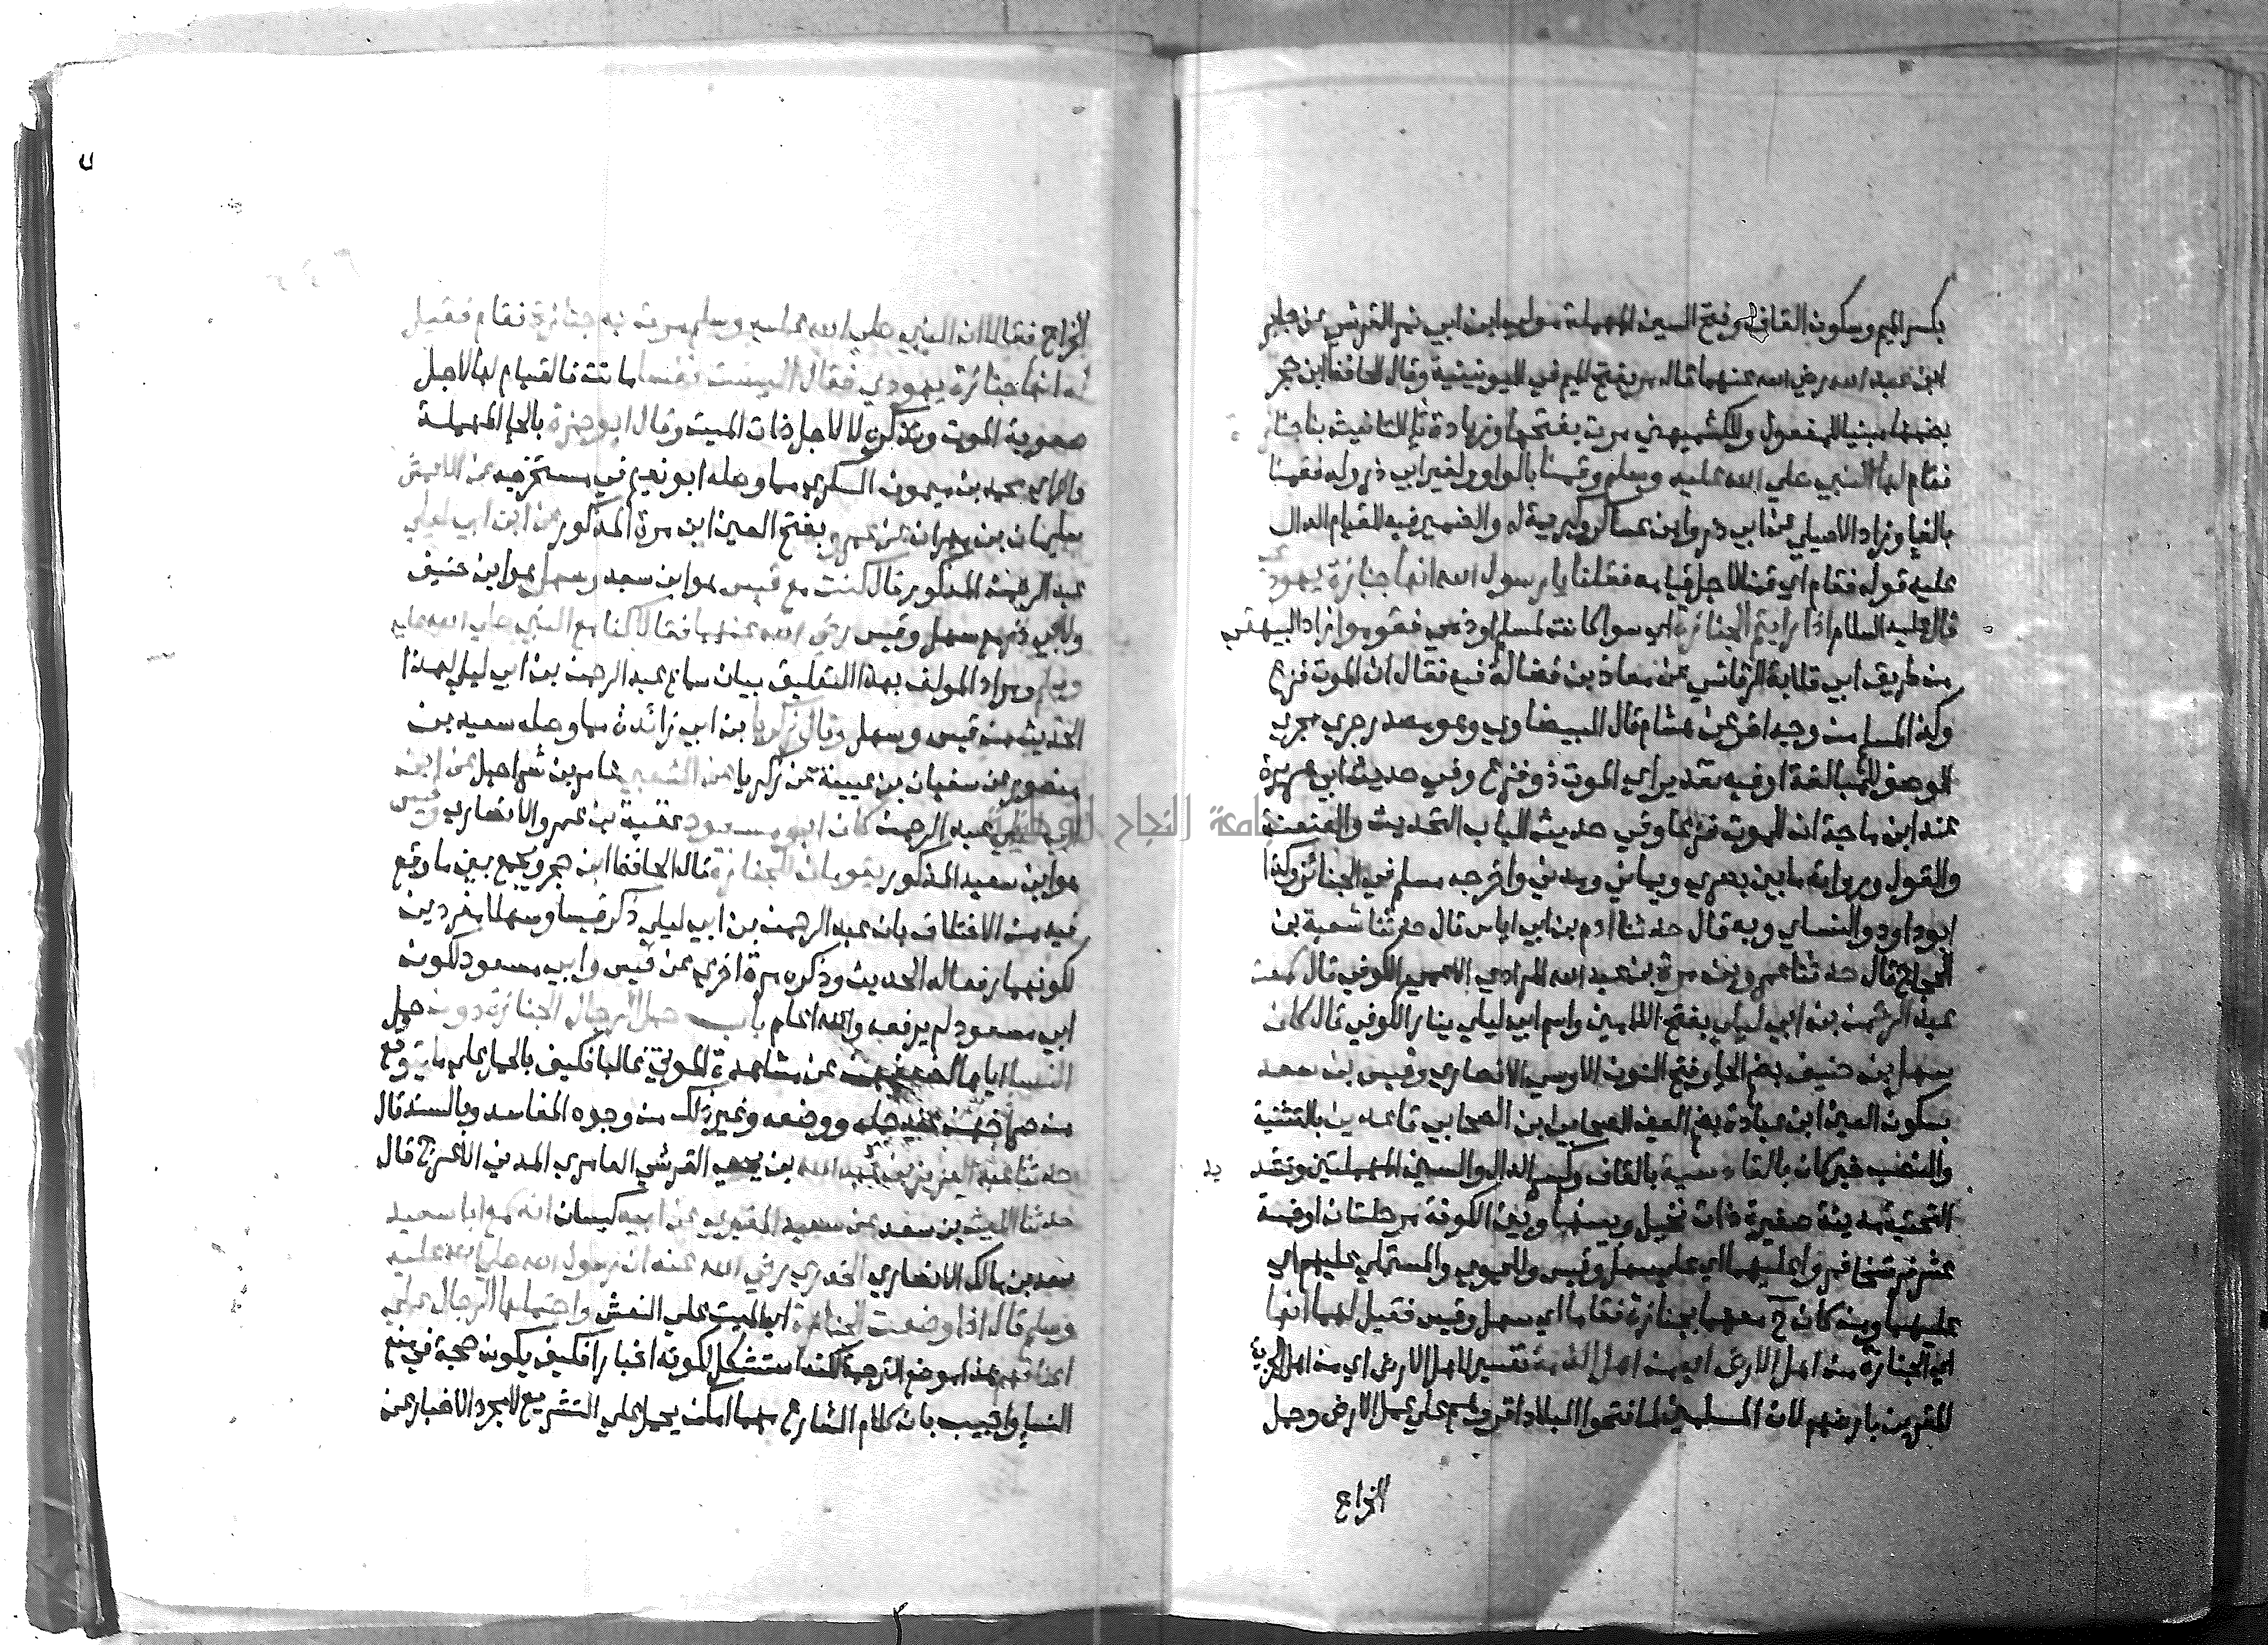 بكسر الميم وسكون القاف وفتح السين المهملة مولى ابن ابي نمر القرشي عن جابر
ابن عبد الله رضي الله عنهما قال مر بفتح الميم في اليونينية وقال الحافظ ابن حجر
بضمها مبنيا للمفعول وللكشميهني مرت بفتحها وزيادة تا التانيث بنا جنازة
فقام لها النبي صلي الله عليه وسلم وقمنا بالواو ولغير ابي ذر وله فقمنا
بالفا وزاد الاصيلي عن ابي ذر وابن عساكر وكريمة له والضمير فيه للقيام الدال
عليه قوله فقام اي قمنا لاجل قيامه فقلنا يا رسول الله انها جنازة يهودي
قال عليه السلام اذا رايتم الجنازة اي سوا كانت لمسلم او ذمي فقوموا زاد البيهقي
من طريق ابي قلابة الرقاشي عن معاذ بن فضالة فيه فقال ان الموت فزع
وكذا لمسلم من وجه اخر عن هشام قال البيضاوي وهو مصدر جري مجري
الوصف للمبالغة او فيه تقدير اي الموت ذو فزع وفي حديث ابي هريرة
عند ابن ماجة ان للموت فزعا وفي حديث الباب التحديث والعنعنة
والقول ورواته ما بين بصري ويماني ومدني واخرجه مسلم في الجنائز وكذا
ابو داود والنساي وبه قال حدثنا ادم بن ابي اياس قال حدثنا شعبة بن
الحجاج قال حدثنا عمرو بن مرة بن عبد الله المرادي الاعمي الكوفي قال سمعت
عبد الرحمن بن ابي ليلي بفتح اللامين واسم ابي ليلي يسار الكوفي قال كان
سهل بن حنيف بضم الحا وفتح النون الاوسي الانصاري وقيس بن سعد
بسكون العين ابن عبادة بضم العين الصحابي ابن الصحابي قاعدين بالتثنية
والنصب خبر كان بالقادسية بالقاف وكسر الدال والسين المهملتين وتشديد
التحتية مدينة صغيرة ذات نخيل وبينها وبين الكوفة مرحلتان او خمسة
عشر فرسخا فمروا عليهما اي علي سهل وقيس وللحموي والمستملي عليهم اي
عليهما ومن كان ح معهما بجنازة فقاما اي سهل وقيس فقيل لهما انها
اي الجنازة من اهل الارض اي من اهل الذمة تفسير لاهل الارض اي من اهل الجزية
المقرين بارضهم لان المسلمين لما فتحوا البلاد اقروهم علي عمل الارض وحمل
الخراج
الخراج فقالا ان النبي صلي الله عليه وسلم مرت به جنازة فقام فقيل
له انها جنازة يهودي فقال اليست نفسا ماتت فالقيام لها لاجل
صعوبة الموت وتذكره لا لاجل ذات الميت وقال ابو حمزة بالحا المهملة
والزاي محمد بن ميمون السكري مما وصله ابو نعيم في مستخرجه عن الاعمش
سليمان بن مهران عن عمرو بفتح العين ابن مرة المذكور عن ابن ابي ليلي
عبد الرحمن المذكور قال كنت مع قيس هو ابن سعد وسهل هو ابن حنيف
ولابي ذر مع سهل وقيس رضي الله عنهما فقالا كنا مع النبي صلي الله عليه
وسلم ومراد المولف بهذا التعليق بيان سماع عبد الرحمن بن ابي ليلي لهذا
الحديث من قيس وسهل وقال زكريا بن ابي زائدة مما وصله سعيد بن
منصور عن سفيان بن عيينة عن زكريا عن الشعبي عامر بن شراحيل عن ابن
ابي ليلي عبد الرحمن كان ابو مسعود عقبة بن عمرو الانصاري وقيس
هو ابن سعيد المذكور يقومان للجنازة قال الحافظ ابن حجر ويجمع بين ما وقع
فيه من الاختلاف بان عبد الرحمن بن ابي ليلي ذكر قيسا وسهلا مفردين
لكونهما رفعا له الحديث وذكره مرة اخري عن قيس وابي مسعود لكون
ابي مسعود لم يرفعه والله اعلم باب حمل الرجال الجنازة دون حمل
النسا اياها لضعفهن عن مشاهدة الموتي غالبا فكيف بالحمل علي ما يتوقع
من صراخهن عند حمله ووضعه وغير ذلك من وجوه المفاسد وبالسند قال
حدثنا عبد العزيز بن عبد الله بن يحيي القرشي العامري المدني الاعرج قال
حدثنا الليث بن سعد عن سعيد المقبري عن ابيه كيسان انه سمع ابا سعيد
سعد بن مالك الانصاري الخدري رضي الله عنه ان رسول الله صلي الله عليه
وسلم قال اذا وضعت الجنازة اي الميت علي النعش واحتملها الرجال علي
اعناقهم هذا موضع الترجمة لكنه استشكل لكونه اخبارا فكيف يكون حجة في منع
النسا واجيب بان كلام الشارع مهما امكن يحمل علي التشريع لا مجرد الاخبار عن
جامعة النجاح الوطنية